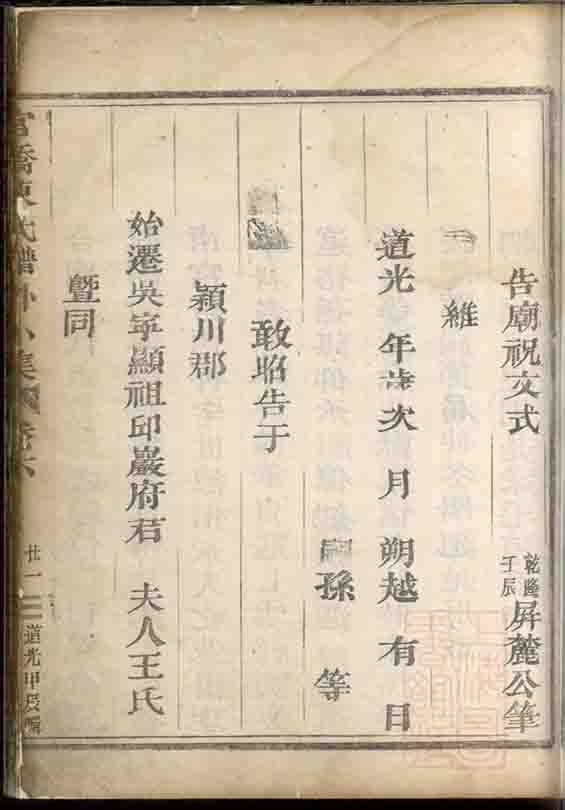 告廟祝文式 乾隆壬辰 屏麓公筆
維
道光 年歲次 月 朔越 有 日
孫 等
敢昭告于
潁川郡
始遷吳寧顯祖邱巖府君 夫人王氏
暨同
氏譜外 集 卷六 廿一 道光甲辰